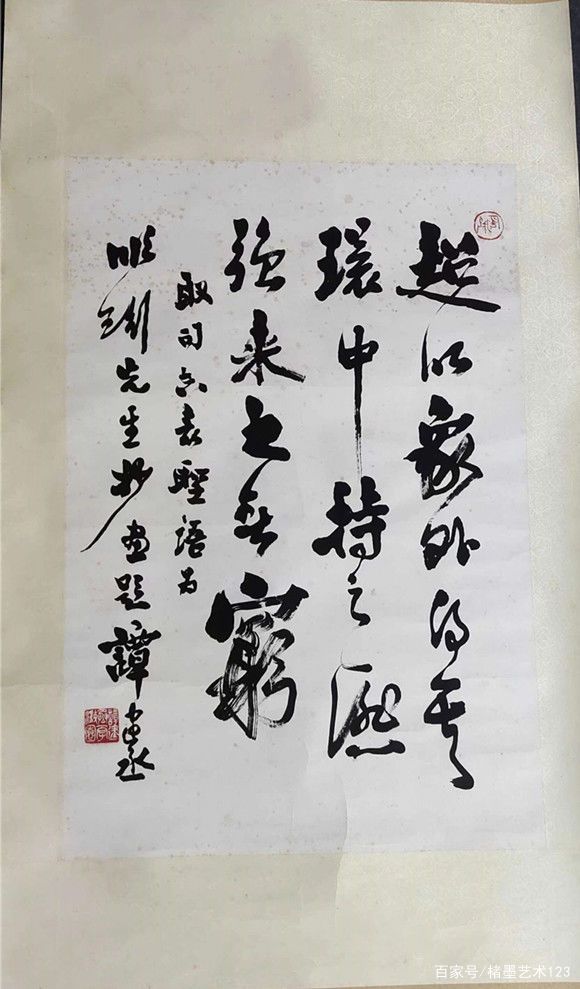 超以象外得其
環中持之匪
強来之無窮
取司空表聖語為
先生妙畫題 譚建丞
百家号/楮墨艺术123